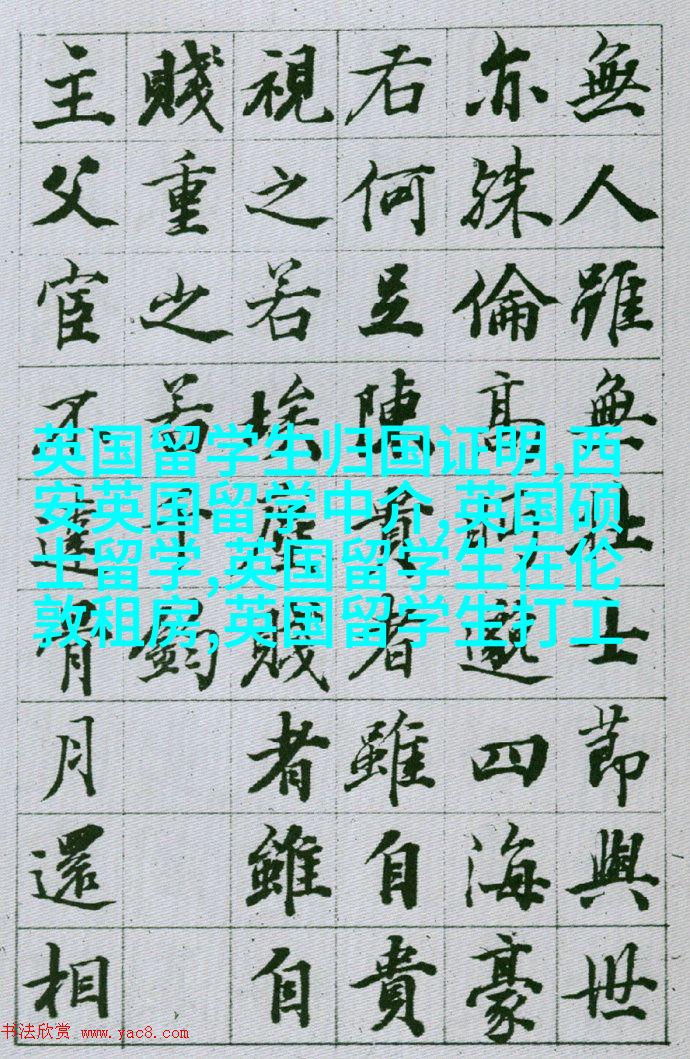 無人雖無壯士節與世
亦殊倫高眄邈四海豪
右何足陳貴者雖自貴
視之若埃塵賤者雖自
賤重之若千鈞
主父宦不達骨月還相
英国留学生归国证明,西
安英国留学中介,英国硕
士留学,英国留学生在伦
敦租房,英国留学生打工
书法欣赏 www.yac8.com